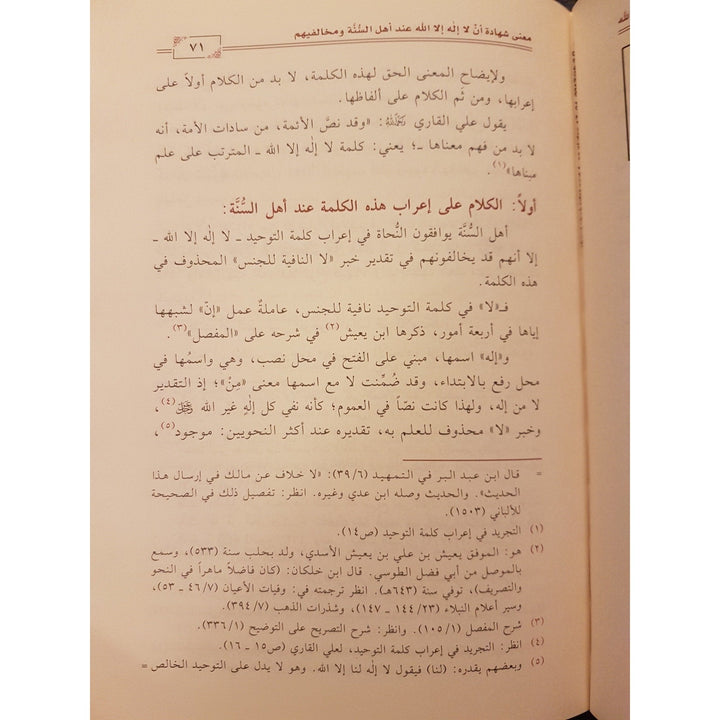 معنى شهادة أنْ لا إلٰه إلا الله عند أهل السُّنَّة ومخالفيهم
٧١
ولإيضاح المعنى الحق لهذه الكلمة، لا بد من الكلام أولاً على
إعرابها، ومن ثَم الكلام على ألفاظها.
يقول علي القاري رَحِمَهُ اللهُ: «وقد نصَّ الأئمة، من سادات الأمة، أنه
لا بد من فهم معناها ـ؛ يعني: كلمة لا إلٰه إلا الله ـ المترتب على علم
مبناها»(١).
أولاً: الكلام على إعراب هذه الكلمة عند أهل السُّنَّة:
أهل السُّنَّة يوافقون النُّحاة في إعراب كلمة التوحيد ـ لا إلٰه إلا الله ـ
إلا أنهم قد يخالفونهم في تقدير خبر «لا النافية للجنس» المحذوف في
هذه الكلمة.
فـ«لا» في كلمة التوحيد نافية للجنس، عاملةٌ عمل «إنّ» لشبهها
إياها في أربعة أمور، ذكرها ابن يعيش(٢) في شرحه على «المفصل»(٣).
و«إله» اسمها، مبني على الفتح في محل نصب، وهي واسمُها في
محل رفع بالابتداء، وقد ضُمِّنت لا مع اسمها معنى «مِنْ»؛ إذ التقدير
لا من إله، ولهذا كانت نصّاً في العموم؛ كأنه نفي كل إلٰهٍ غير الله ﷻ(٤)،
وخبر «لا» محذوف للعلم به، تقديره عند أكثر النحويين: موجود(٥)،
= قال ابن عبد البر في التمهيد (٣٩/٦): «لا خلاف عن مالك في إرسال هذا
الحديث». والحديث وصله ابن عدي وغيره. انظر: تفصيل ذلك في الصحيحة
للألباني (١٥٠٣).
(١) التجريد في إعراب كلمة التوحيد (ص١٤).
(٢) هو: الموفق يعيش بن علي بن يعيش الأسدي، ولد بحلب سنة (٥٣٣)، وسمع
بالموصل من أبي فضل الطوسي. قال ابن خلكان: (كان فاضلاً ماهراً في النحو
والتصريف)، توفي سنة (٦٤٣هـ). انظر ترجمته في: وفيات الأعيان (٤٦/٧ ـ ٥٣)،
وسير أعلام النبلاء (١٤٤/٢٣ ـ ١٤٧)، وشذرات الذهب (٣٩٤/٧).
(٣) شرح المفصل (١٠٥/١). وانظر: شرح التصريح على التوضيح (٣٣٦/١).
(٤) انظر: التجريد في إعراب كلمة التوحيد، لعلي القاري (ص١٥ ـ ١٦).
(٥) وبعضهم يقدره: (لنا) فيقول لا إلٰه لنا إلا الله. وهو لا يدل على التوحيد الخالص =